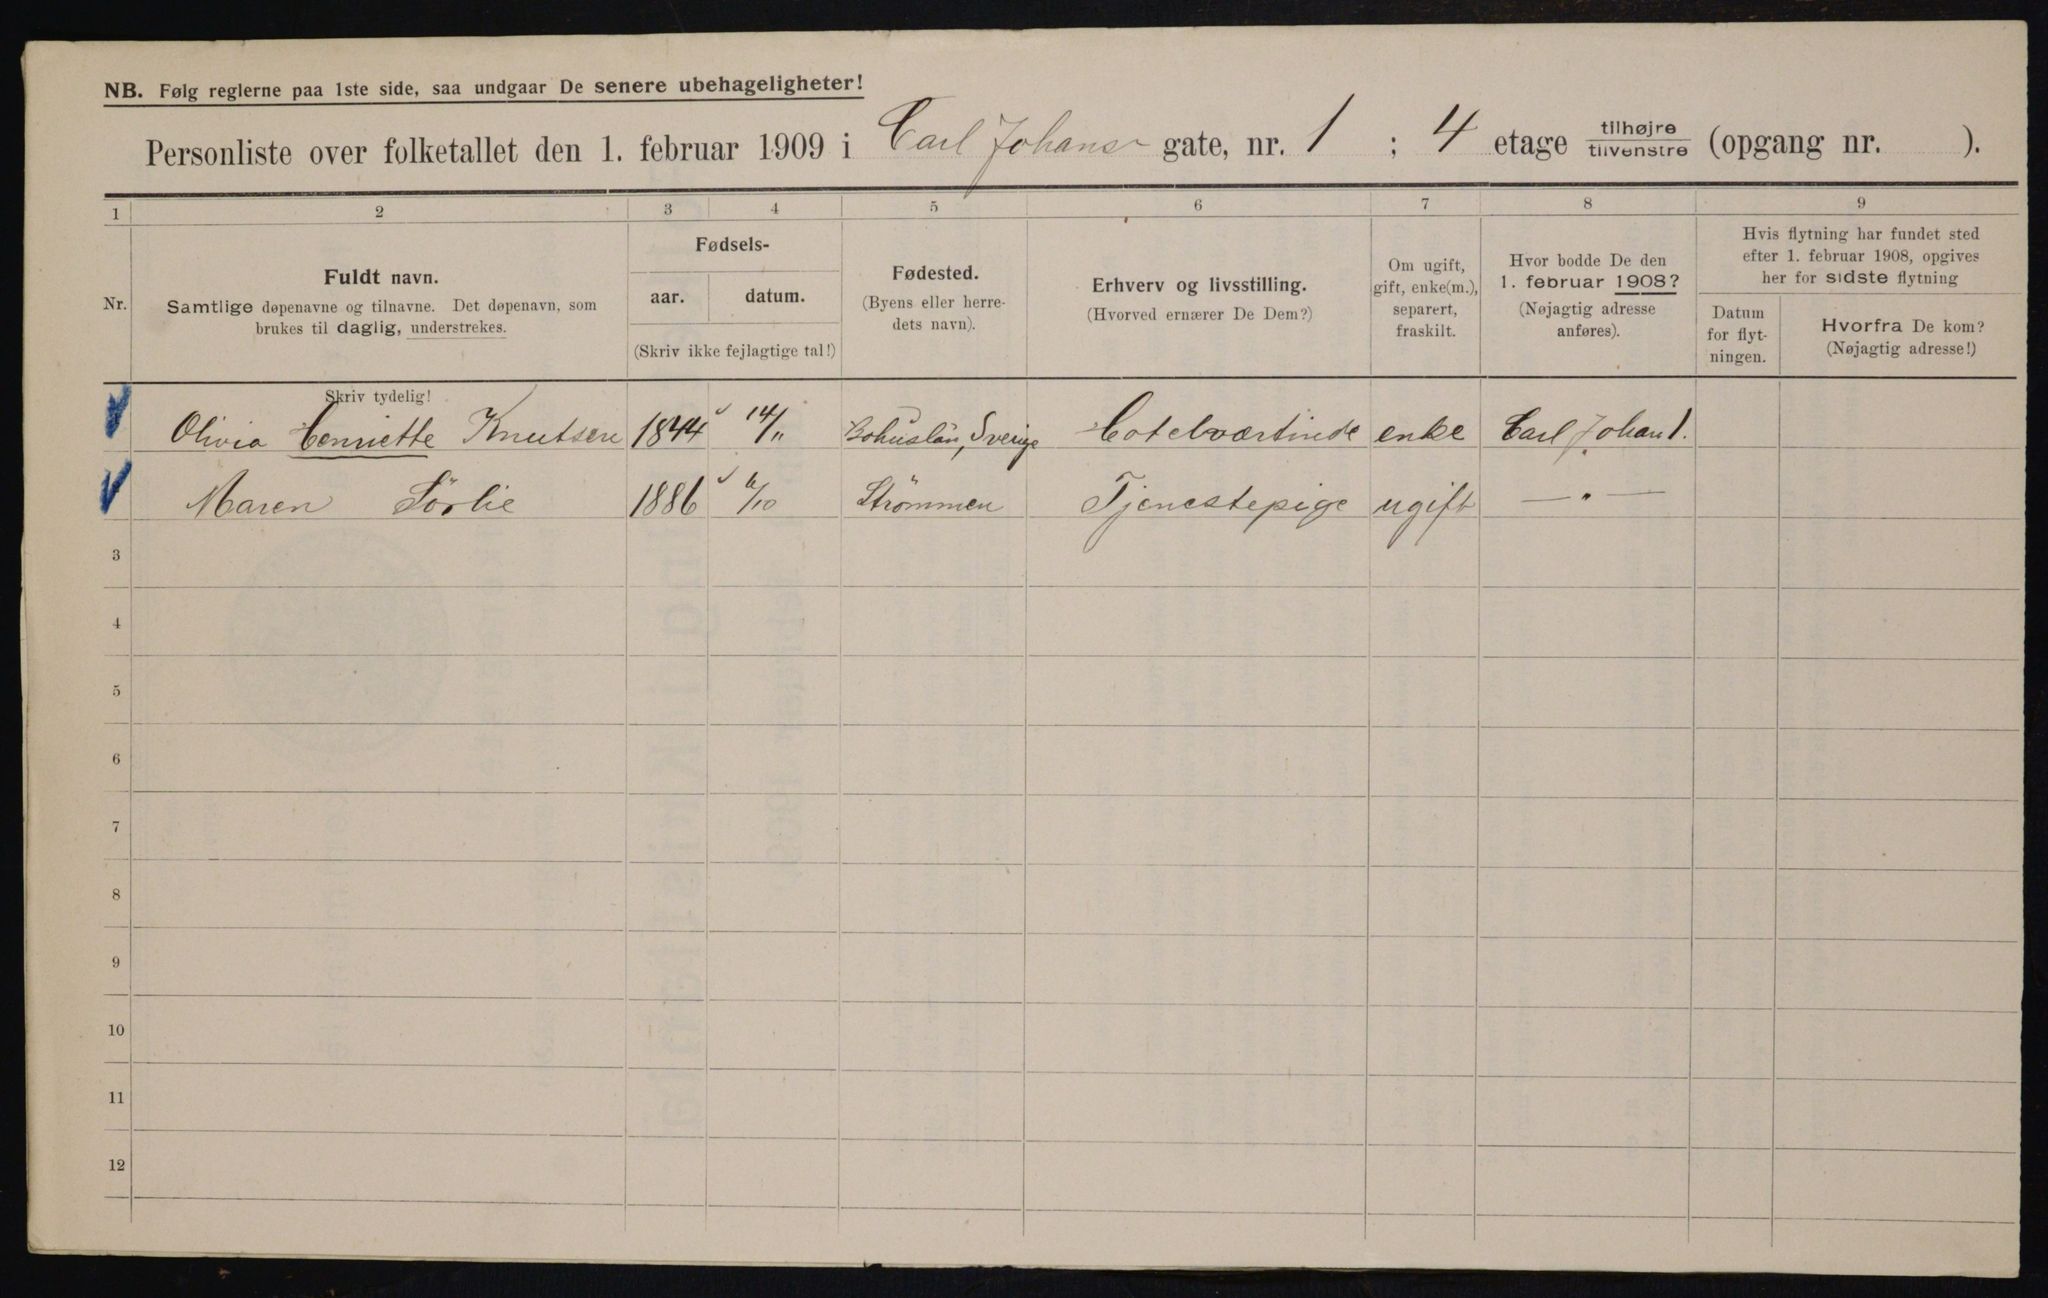 NB. Følg reglerne paa 1ste side, saa undgaar De senere ubehageligheter!
Personliste over folketallet den 1. februar 1909 i Carl Johans gate, nr. 1 ; 4 etage tilhøjre tilvenstre (opgang nr. ).
1 2 3 4 5 6 7 8 9
Nr.
Fuldt navn.
Samtlige døpenavne og tilnavne. Det døpenavn, som
brukes til daglig, understrekes.
Fødsels-
aar. datum.
(Skriv ikke fejlagtige tal!)
Fødested.
(Byens eller herre-
dets navn).
Erhverv og livsstilling.
(Hvorved ernærer De Dem?)
Om ugift,
gift, enke(m.),
separert,
fraskilt.
Hvor bodde De den
1. februar 1908?
(Nøjagtig adresse
anføres).
Hvis flytning har fundet sted
efter 1. februar 1908, opgives
her for sidste flytning
Datum
for flyt-
ningen.
Hvorfra De kom?
(Nøjagtig adresse!)
Skriv tydelig!
Olivia Henriette Knutsen 1844 14/11 Bohuslän, Sverige Hotelværtinde enke Carl Johan 1.
Maren Sörlie 1886 6/10 Strömmen Tjenestepige ugift — " —
3
4
5
6
7
8
9
10
11
12